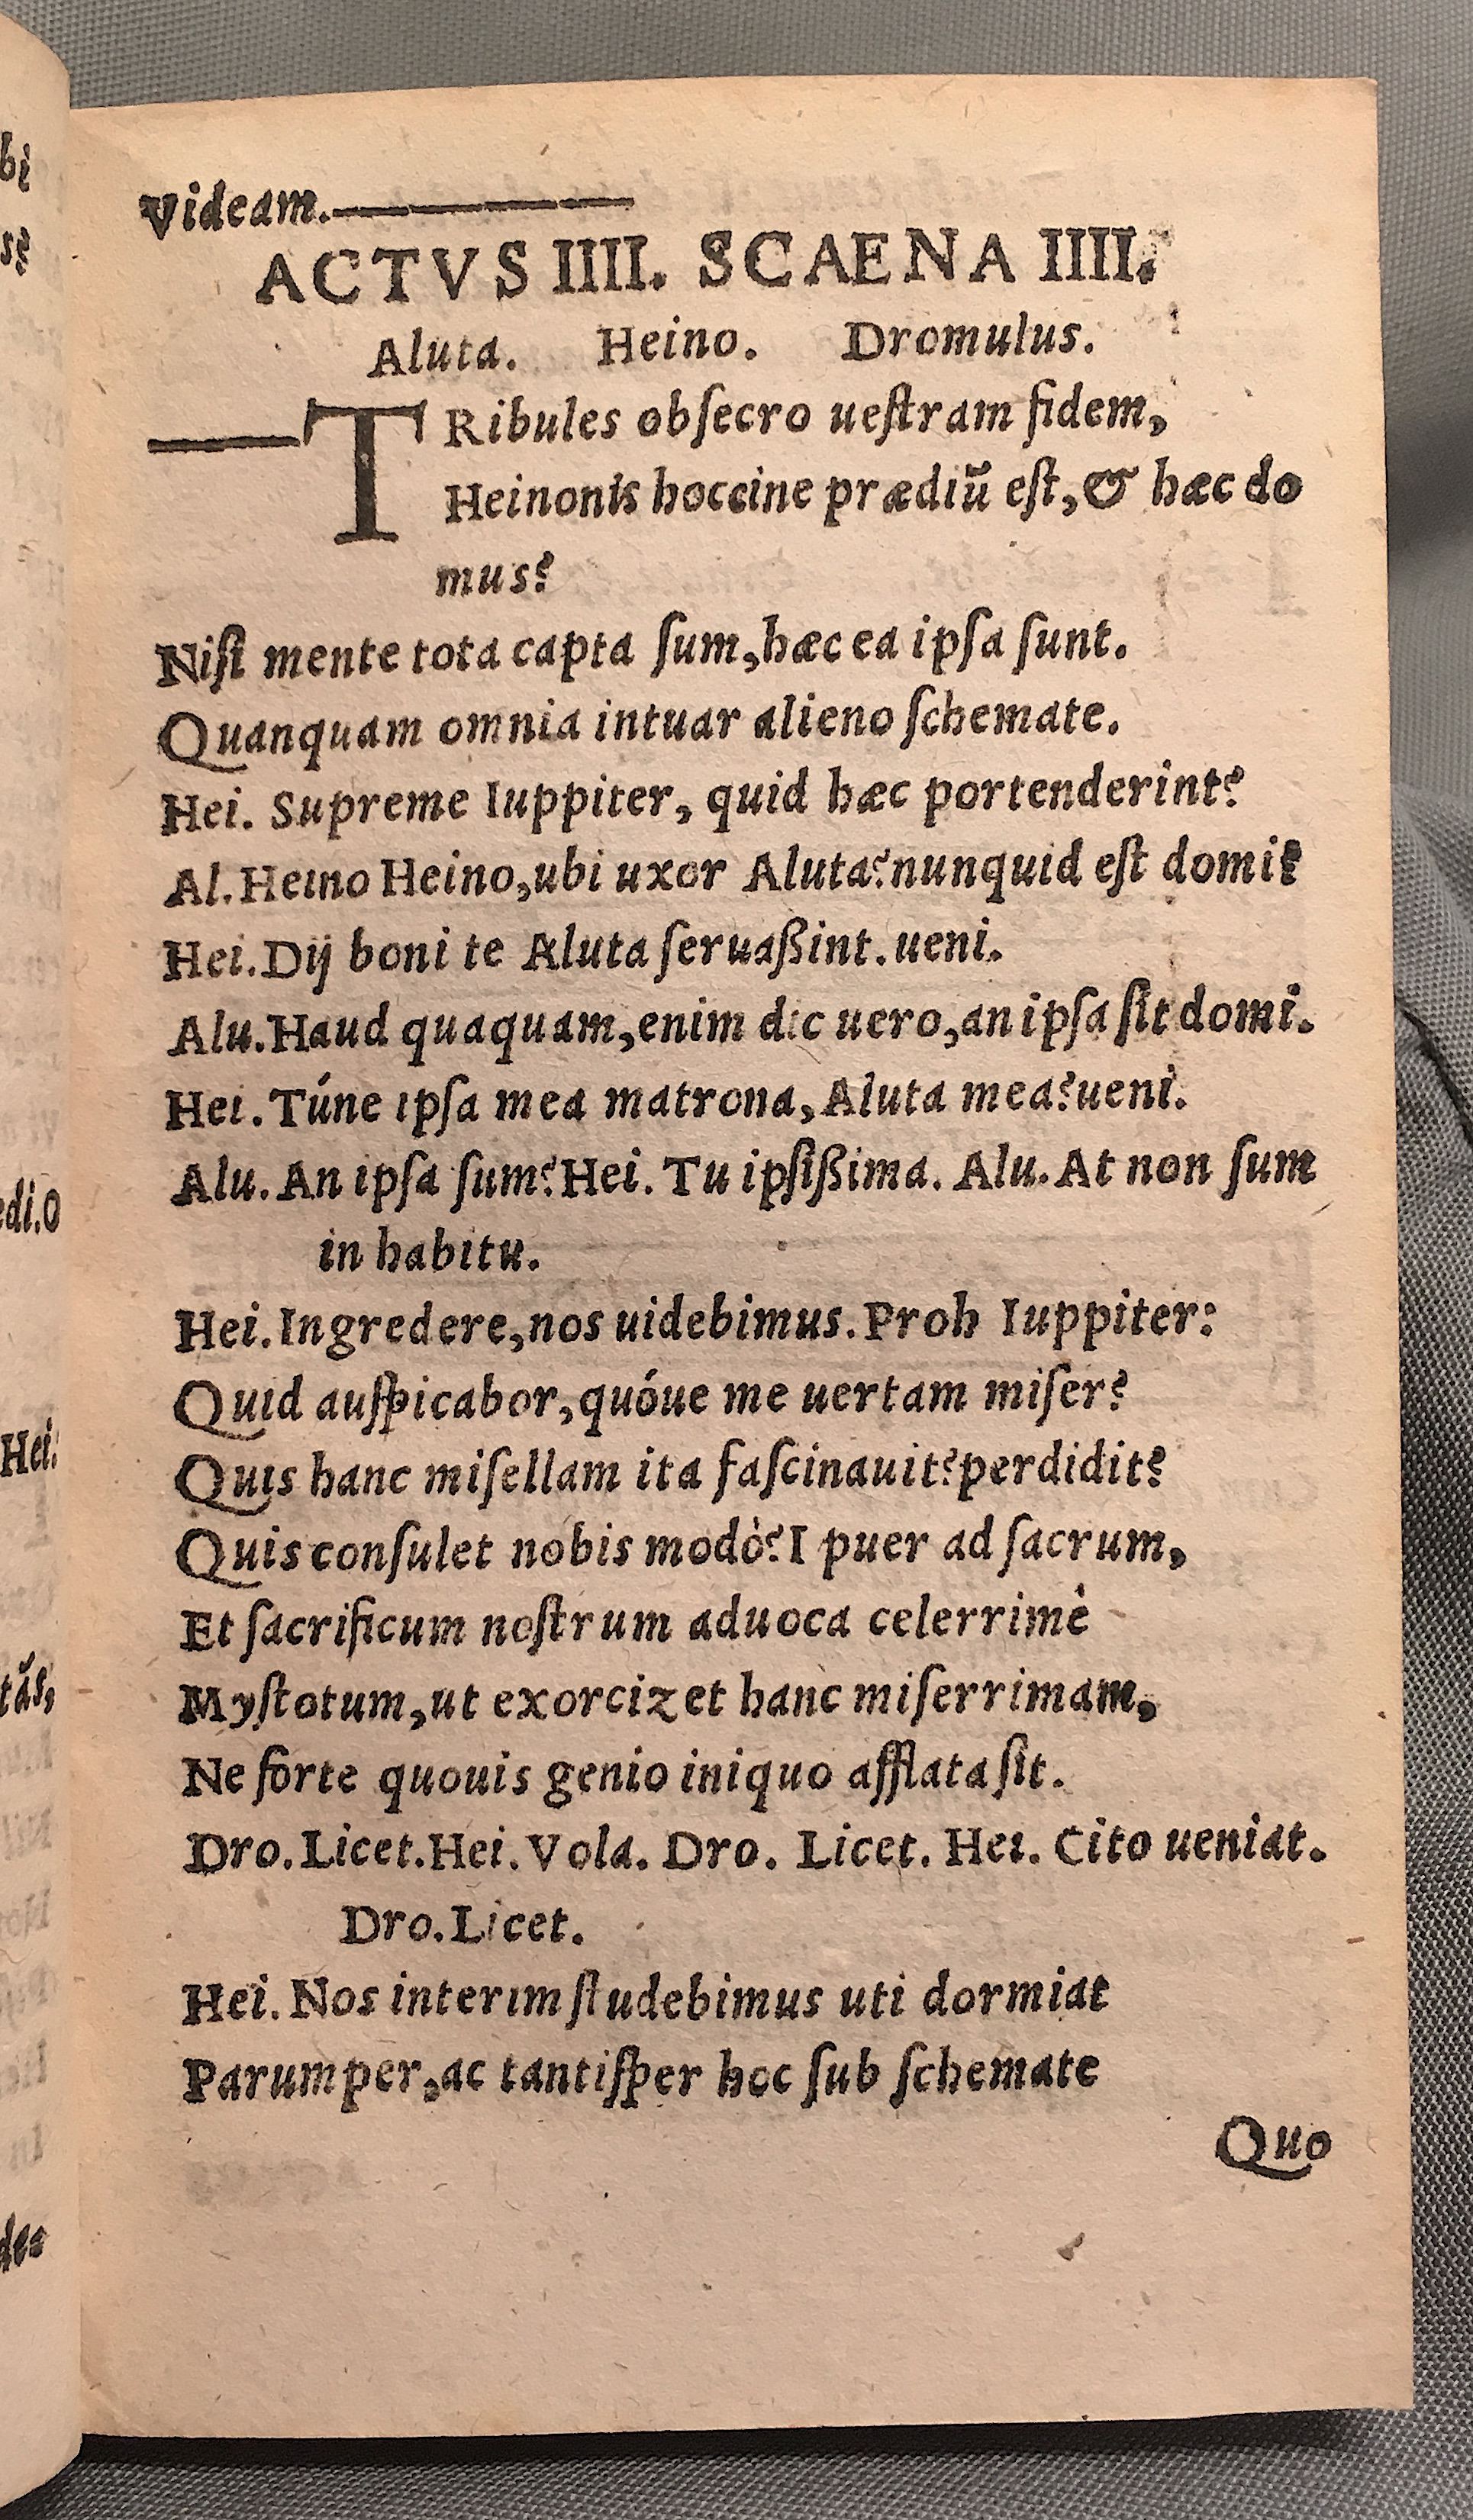 Videam.
ACTVS IIII. SCAENA IIII.
Aluta. Heino. Dromulus.
TRibules obſecro ueſtram fidem,
Heinonis hoccine prædiũ eſt, & hæc do
mus?
Niſi mente tota capta ſum, hæc ea ipſa ſunt.
Quanquam omnia intuar alieno ſchemate.
Hei. Supreme Iuppiter, quid hæc portenderint?
Al. Heino Heino, ubi uxor Aluta? nunquid eſt domi?
Hei. Dij boni te Aluta ſeruaßint. ueni.
Alu. Haud quaquam, enim dic uero, an ipſa ſit domi.
Hei. Túne ipſa mea matrona, Aluta mea? ueni.
Alu. An ipſa ſum? Hei. Tu ipſißima. Alu. At non ſum
in habitu.
Hei. Ingredere, nos uidebimus. Proh Iuppiter:
Quid auſpicabor, quóue me uertam miſer?
Quis hanc miſellam ita faſcinauit? perdidit?
Quis conſulet nobis modò? I puer ad ſacrum,
Et ſacrificum noſtrum aduoca celerrimè
Myſtotum, ut exorcizet hanc miſerrimam,
Ne forte quouis genio iniquo afflata ſit.
Dro. Licet. Hei. Vola. Dro. Licet. Hei. Cito ueniat.
Dro. Licet.
Hei. Nos interim ſtudebimus uti dormiat
Parumper, ac tantiſper hoc ſub ſchemate
Quo